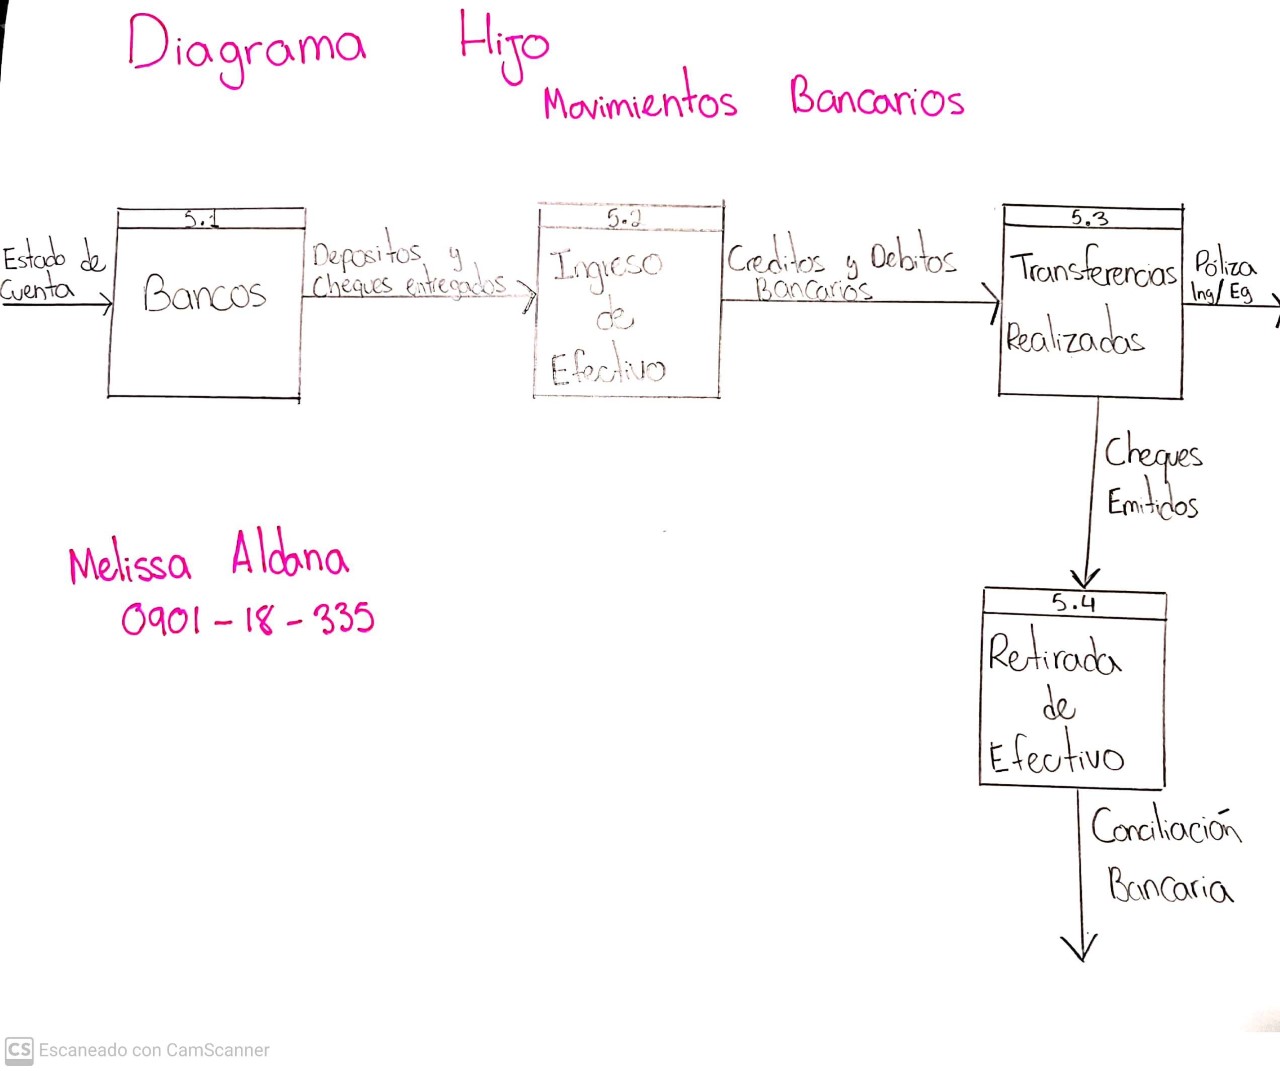 Diagrama Hijo
Movimientos Bancarios
Estado de
Cuenta
5.1
Bancos
Depositos y
Cheques entregados
5.2
Ingreso
de
Efectivo
Creditos y Debitos
Bancarios
5.3
Transferencias
Realizadas
Póliza
Ing/Eg
Cheques
Emitidos
5.4
Retirada
de
Efectivo
Conciliación
Bancaria
Melissa Aldana
0901-18-335
CS Escaneado con CamScanner